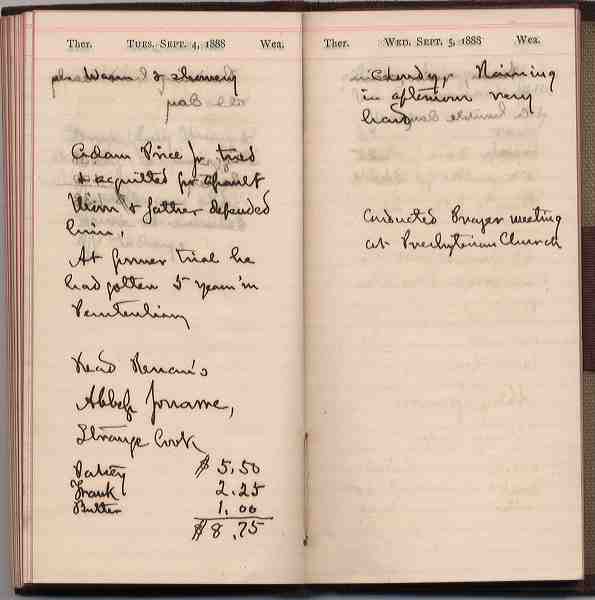 Ther. TUES. SEPT. 4, 1888 Wea.
Warm & showery
Adam Price Jr tried
& acquitted for assault
& father defended
him,
At former trial he
had gotten 5 years in
Penitentiary
Read Renan's
Abbess Jouarre,
Strange Cook
$ 5.50
Frank 2.25
Butter 1.00
$ 8.75
Ther. WED. SEPT. 5, 1888 Wea.
Cloudy, Raining
in afternoon very
hard
Conducted Prayer meeting
at Presbyterian Church